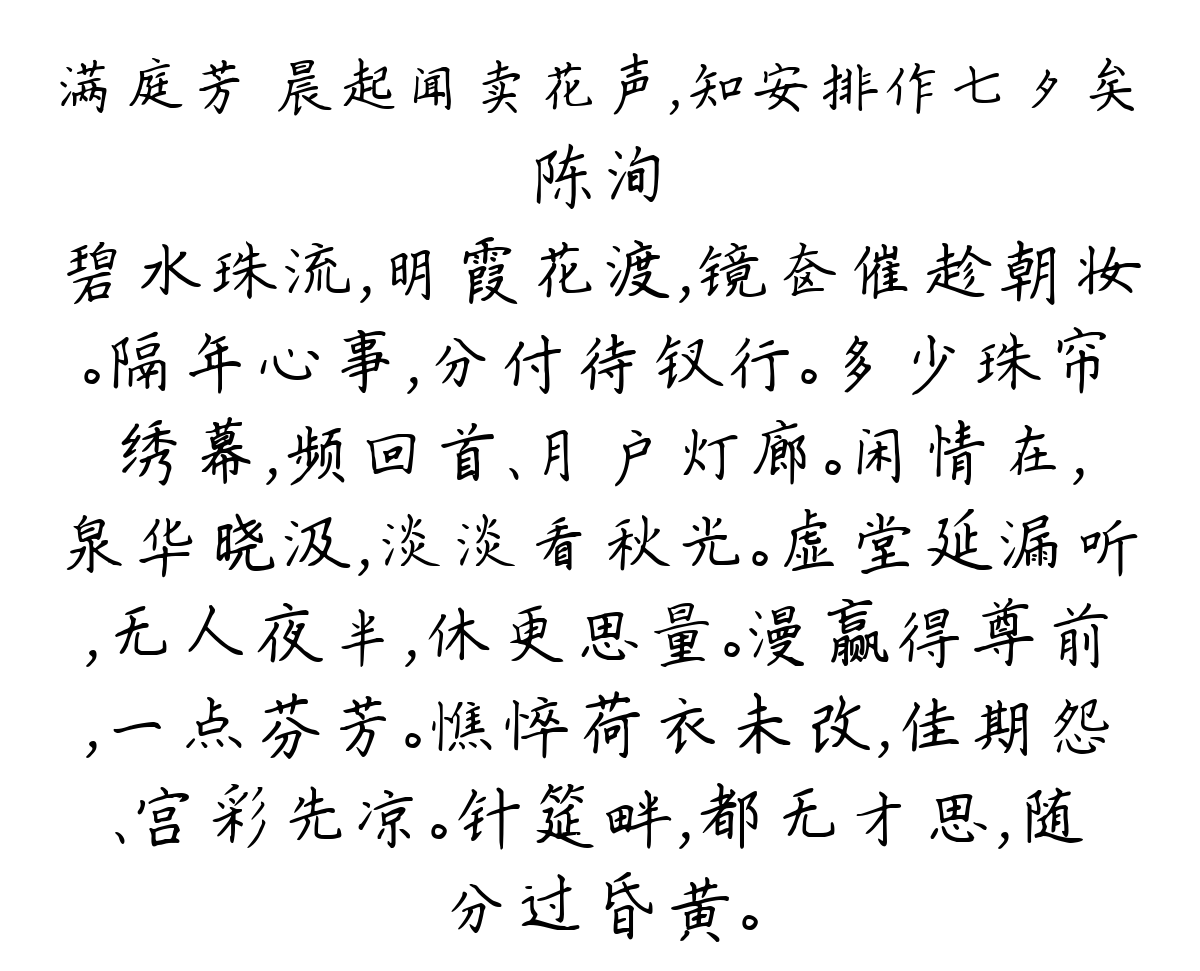 满庭芳 晨起闻卖花声,知安排作七夕矣
陈洵
碧水珠流,明霞花渡,镜奁催趁朝妆
。隔年心事,分付待钗行。多少珠帘
绣幕,频回首、月户灯廊。闲情在,
泉华晓汲,淡淡看秋光。虚堂延漏听
,无人夜半,休更思量。漫赢得尊前
,一点芬芳。憔悴荷衣未改,佳期怨
、宫彩先凉。针筵畔,都无才思,随
分过昏黄。